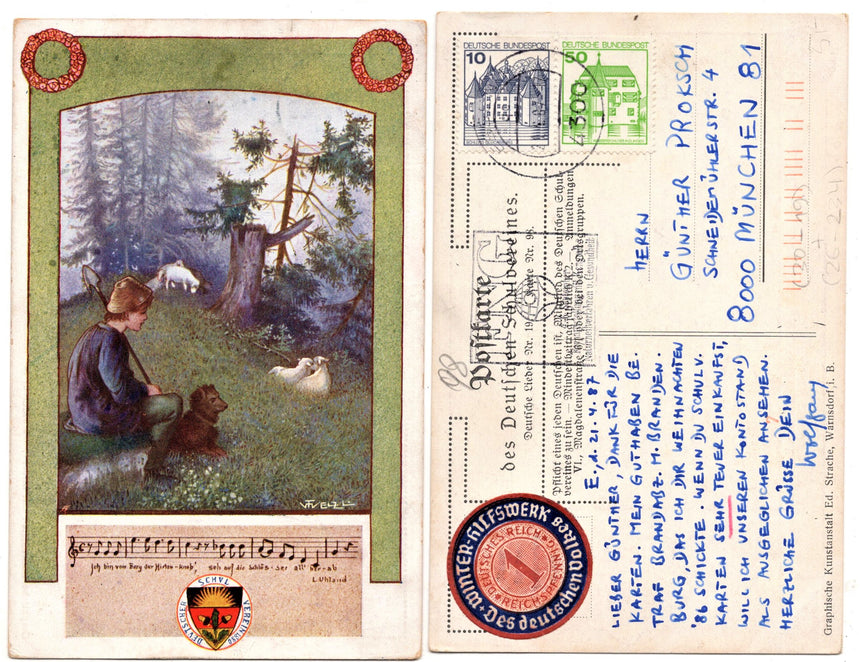 Ich bin vom Berg der Hirten-knab', seh auf die Schlös-ser all' her-ab
L. Uhland
DEUTSCHER SCHUL VEREIN 1880
DEUTSCHE BUNDESPOST
10
DEUTSCHE BUNDESPOST
50
4300
Postkarte
des Deutschen Schulvereines.
Deutsche Lieder Nr. 19
Karte Nr. 98.
Pflicht eines jeden Deutschen ist, Mitglied des Deutschen Schul-
vereines zu sein. — Mindestbeitrag
K 2.— Anmeldungen
VI., Magdalenenstraße
oder bei den Ortsgruppen.
Naturheilverfahren u. Gesundheit
98
HERRN
GÜNTHER PROKSCH
SCHNEIDEMÜHLERSTR. 4
8000 MÜNCHEN 81
E., d. 21.4.87
LIEBER GÜNTHER, DANK FÜR DIE
KARTEN. MEIN GUTHABEN BE.
TRAF BRANDABZ. M. BRANDEN.
BURG, DAS ICH DIR WEIHNACHTEN
'86 SCHICKTE. WENN DU SCHULV.
KARTEN SEHR TEUER EINKAUFST,
WILL ICH UNSEREN KONTOSTAND
ALS AUSGEGLICHEN ANSEHEN.
HERZLICHE GRÜSSE DEIN
Wolfgang
WINTER-HILFSWERK
Des deutschen Volkes
DEUTSCHES REICH
1
REICHSPFENNIG
Graphische Kunstanstalt Ed. Strache, Warnsdorf i. B.